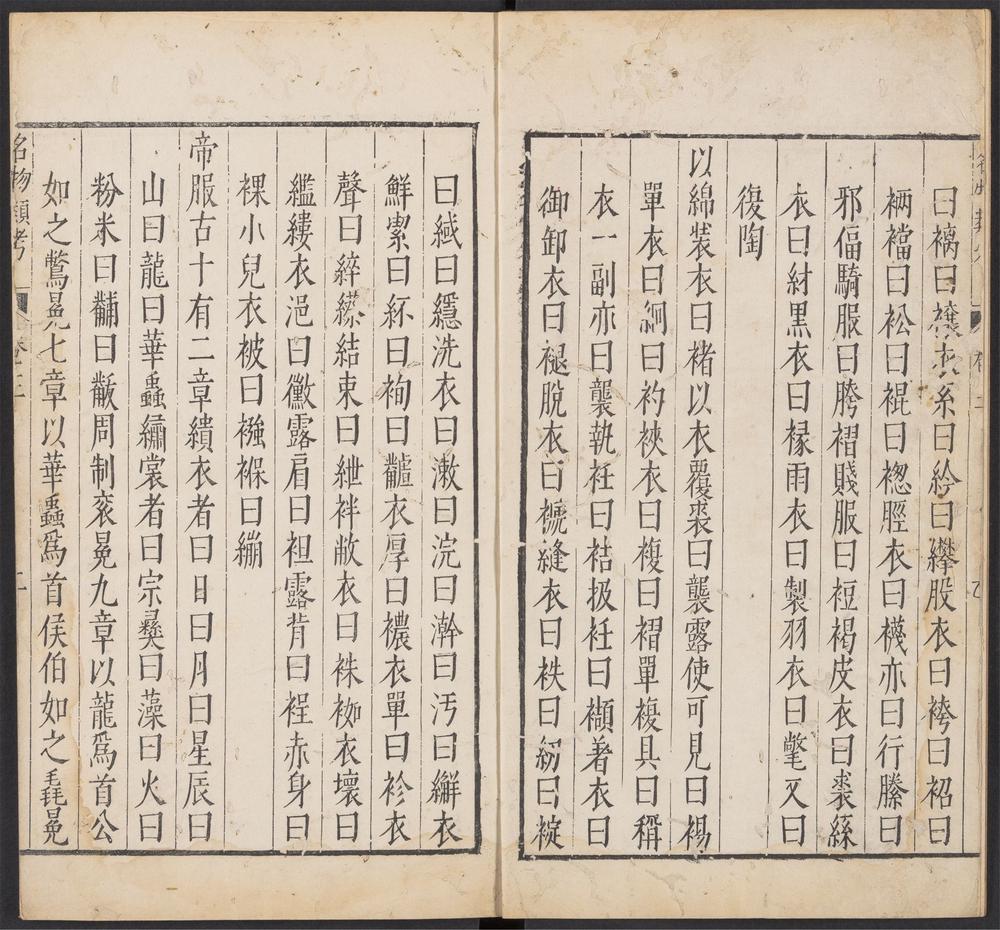 曰褵曰䙰衣系曰紟曰繂股衣曰袴曰袑曰
裲襠曰衳曰裩曰㹅脛衣曰襪亦曰行縢曰
邪偪騎服曰胯褶賤服曰裋褐皮衣曰裘絲
衣曰紨黑衣曰褖雨衣曰製羽衣曰氅又曰
復陶
以綿裝衣曰褚以衣覆裘曰襲露使可見曰裼
單衣曰絅曰袀裌衣曰複曰褶單複具曰稱
衣一副亦曰襲執衽曰袺扱衽曰襭著衣曰
御卸衣曰褪脫衣曰褫縫衣曰袟曰紉曰綻
曰緎曰繧洗衣曰潄曰浣曰澣曰汚曰繲衣
鮮潔曰紑曰袧曰䵵衣厚曰襛衣單曰袗衣
聲曰綷縩結束曰紲袢敝衣曰袾袽衣壞曰
繿縷衣浥曰黴露肩曰袒露背曰裎赤身曰
裸小兒衣被曰襁褓曰繃
帝服古十有二章繢衣者曰日曰月曰星辰曰
山曰龍曰華蟲繡裳者曰宗彝曰藻曰火曰
粉米曰黼曰黻周制袞冕九章以龍爲首公
如之鷩冕七章以華蟲爲首侯伯如之毳冕
名物類考 卷二